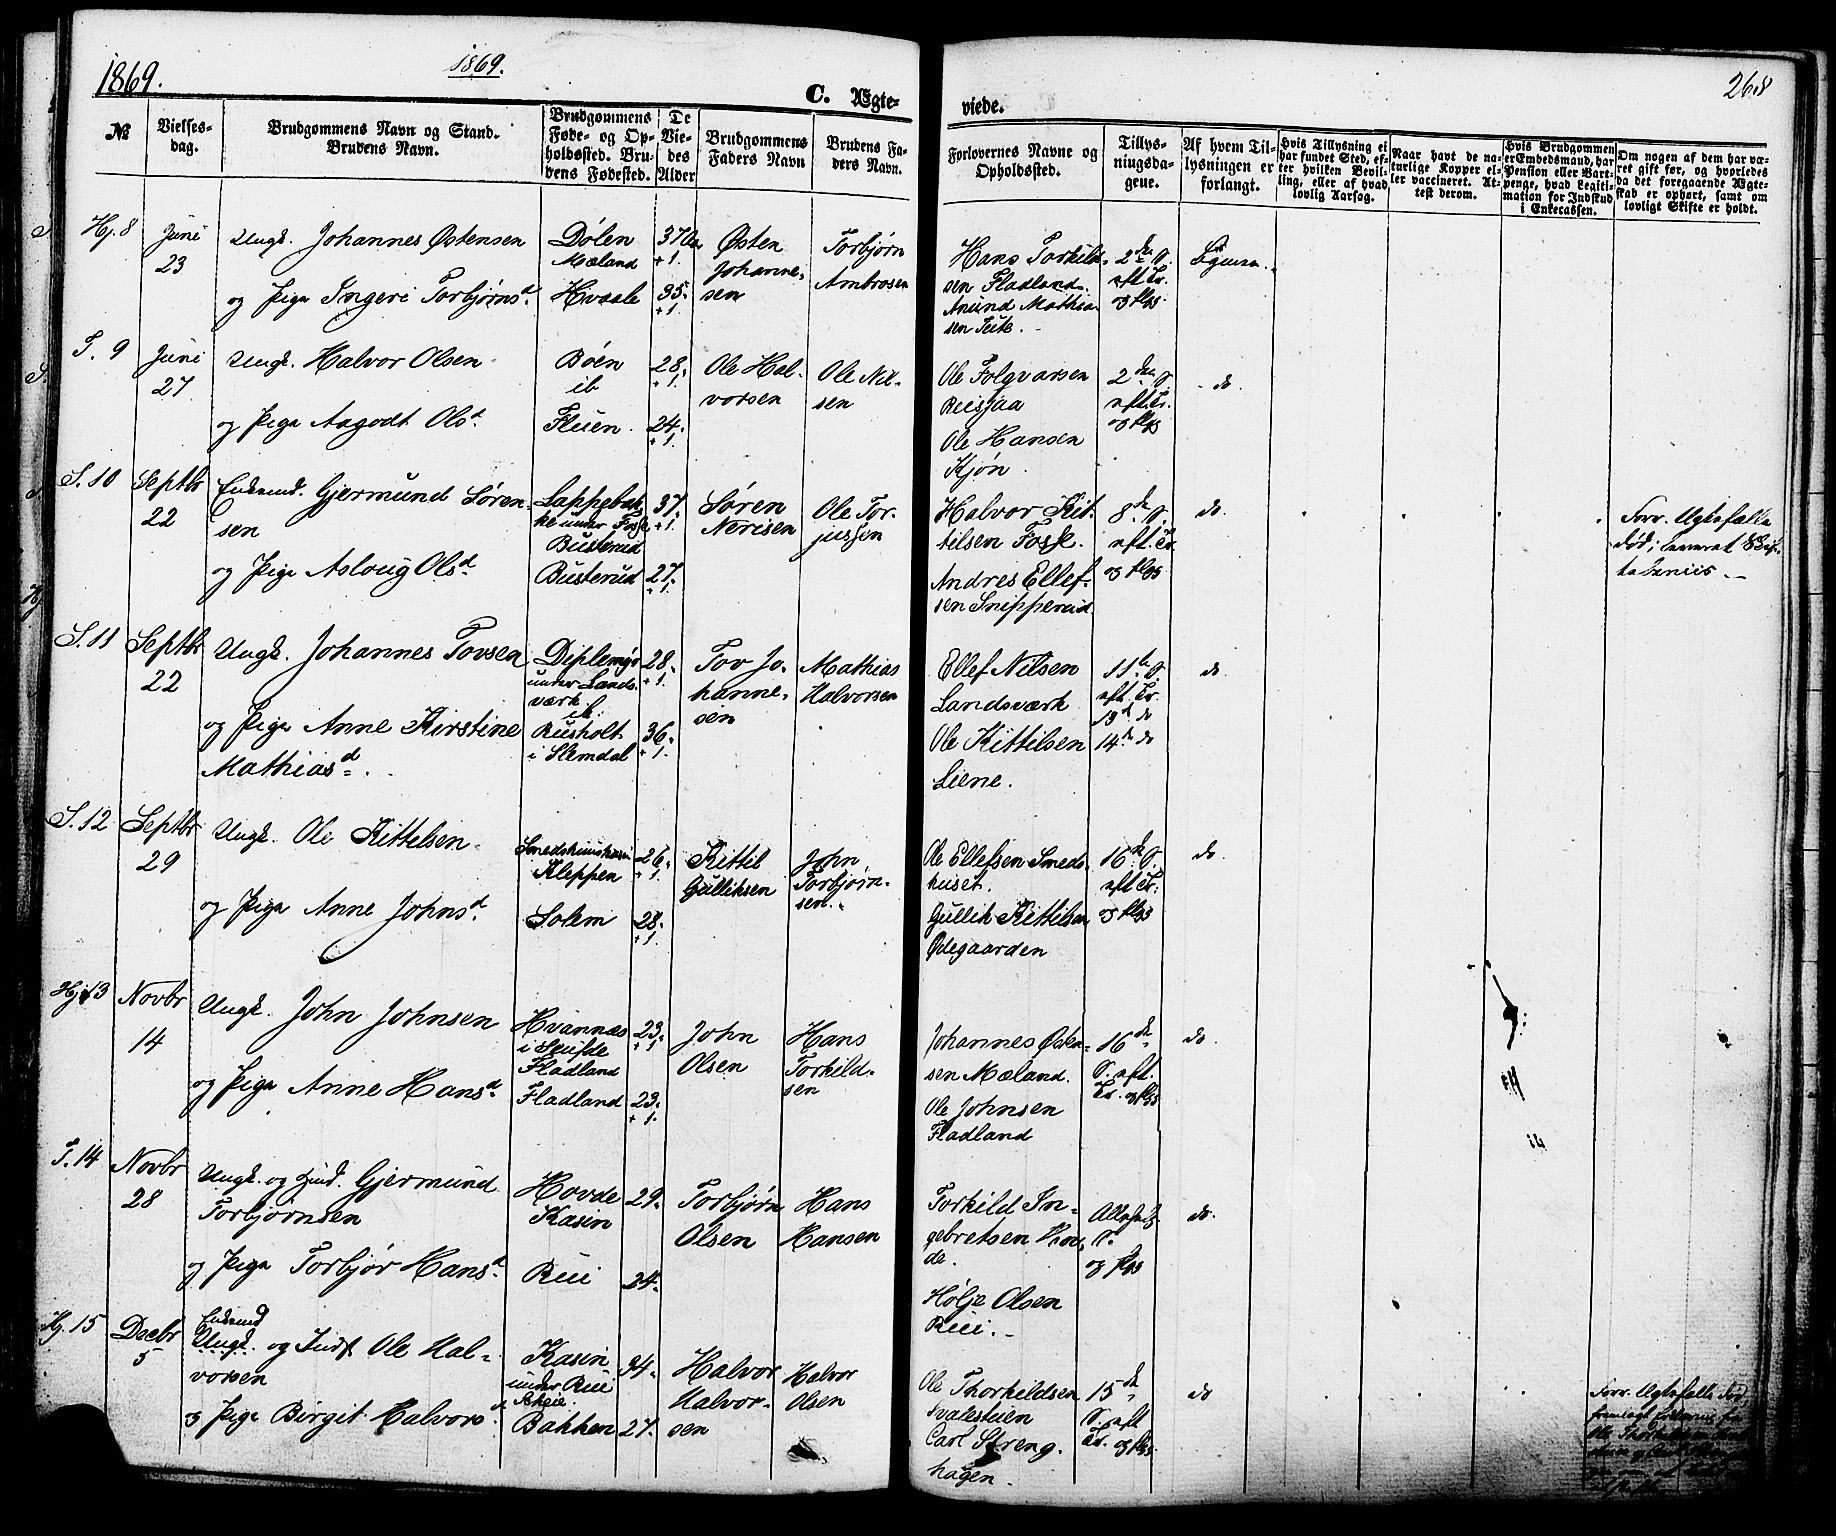 1869.
1869.
C. Ægte-
viede.
268
№
Vielses-
dag.
Brudgommens Navn og Stand.
Brudens Navn.
Brudgommens
Føde- og Op-
holdssted. Bru-
dens Fødested.
De
Vie-
des
Alder
Brudgommens
Faders Navn
Brudens Fa-
ders Navn.
Forlovernes Navne og
Opholdssted.
Tillys-
ningsda-
gene.
Af hvem Til-
lysningen er
forlangt.
Hvis Tillysning ei
har fundet Sted, ef-
ter hvilken Bevil-
ling, eller af hvad
lovlig Aarsag.
Naar havt de na-
turlige Kopper el-
ler vaccineret. At-
test derom.
Hvis Brudgommen
er Embedsmand, har
Pension eller Vart-
penge, hvad Legiti-
mation for Indskud
i Enkecassen.
Om nogen af dem har væ-
ret gift før, og hvorledes
da det foregaaende Ægte-
skab er ophørt, samt om
lovligt Skifte er holdt.
Hj. 8
Juni
23
Ungk. Johannes Østensen
og Pige Ingeri Torbjørnsd.
Dølen
Mæland
Hvaale
37 Aar
+1.
35.
+1.
Østen
Johanne-
sen
Torbjørn
Ambrosen
Hans Torkild-
sen Fladland.
Anund Mathia-
sen Teite.
2den S.
aft. Tr.
og flgg.
T. 9
Juni
27
Ungk. Halvor Olsen
og Pige Aagodt Olsd.
Bøen
ib
Fluen.
28.
+1.
24.
+1.
Ole Hal-
vorsen
Ole Nil-
sen
Ole Folqvarsen
Ruisjaa
Ole Hansen
Kjøn.
2den S.
aft. Tr.
og flgg
do.
S. 10
Septbr
22
Enkemd. Gjermund Søren-
sen
og Pige Asloug Olsd.
Lappebak-
ke under Fosse
Busterud
Busterud
37.
+1.
27.
+1.
Søren
Nerisen
Ole Tor-
jussen
Halvor Kit-
tilsen Fosse.
Andres Ellef-
sen Snipperud.
8de S.
aft. Tr.
og flgg
do.
Forr. Ægtefælle
død;
S. 11
Septbr
22
Ungk. Johannes Tovsen
og Pige Anne Kirstine
Mathiasd.
Diplemyr
under Lands-
værk
ib.
Rusholt
i Slemdal
28.
+1.
36.
+1.
Tov Jo-
hanne-
sen
Mathias
Halvorsen
Ellef Nilsen
Landsværk
Ole Kittilsen
Liene.
11te S.
aft. Tr.
13d do
14de do
do
S. 12
Septbr
29
Ungk. Ole Kittelsen
og Pige Anne Johnsd.
Kleppen
Solem
26.
+1.
28.
+1.
Kittil
Gulliksen
John
Torbjørn-
sen.
Ole Ellefsen Smeds-
huset.
Gullik Kittilsen
Ødegaarden
16de S.
aft Tr.
og flgg
do.
Hj. 13
Novbr
14
Ungk. John Johnsen
og Pige Anne Hansd.
Hvannæs
i Seufde
Fladland
Fladland
23.
+1
23.
+1.
John
Olsen
Hans
Torkild-
sen
Johannes Østen-
sen Mæland.
Ole Johnsen
Fladland
16de
S. aft.
Tr. og flgg
do.
T. 14
Novbr
28
Ungk. og Gjermund
Torbjørnsen
og Pige Torbjør Hansd.
Hovde
Kasin
Rui
29.
24.
Torbjørn
Olsen
Hans
Hansen
Torkild In-
gebretsen Hov-
de.
Hølje Olsen
Rui.
S.
og flgg
do.
Hj. 15
Decbr
5
Enkemd
Ungk. og Inds. Ole Hal-
vorsen
og Pige Birgit Halvorsd.
Kasin
under Rui
Bakken
34.
27.
Halvor
Halvor-
sen
Halvor
Olsen
Ole Thorkildsen
Svalestuen
Carl Streng-
hagen.
15de
S. aft
Tr. og flgg.
do
Forr. Ægtefælle død,